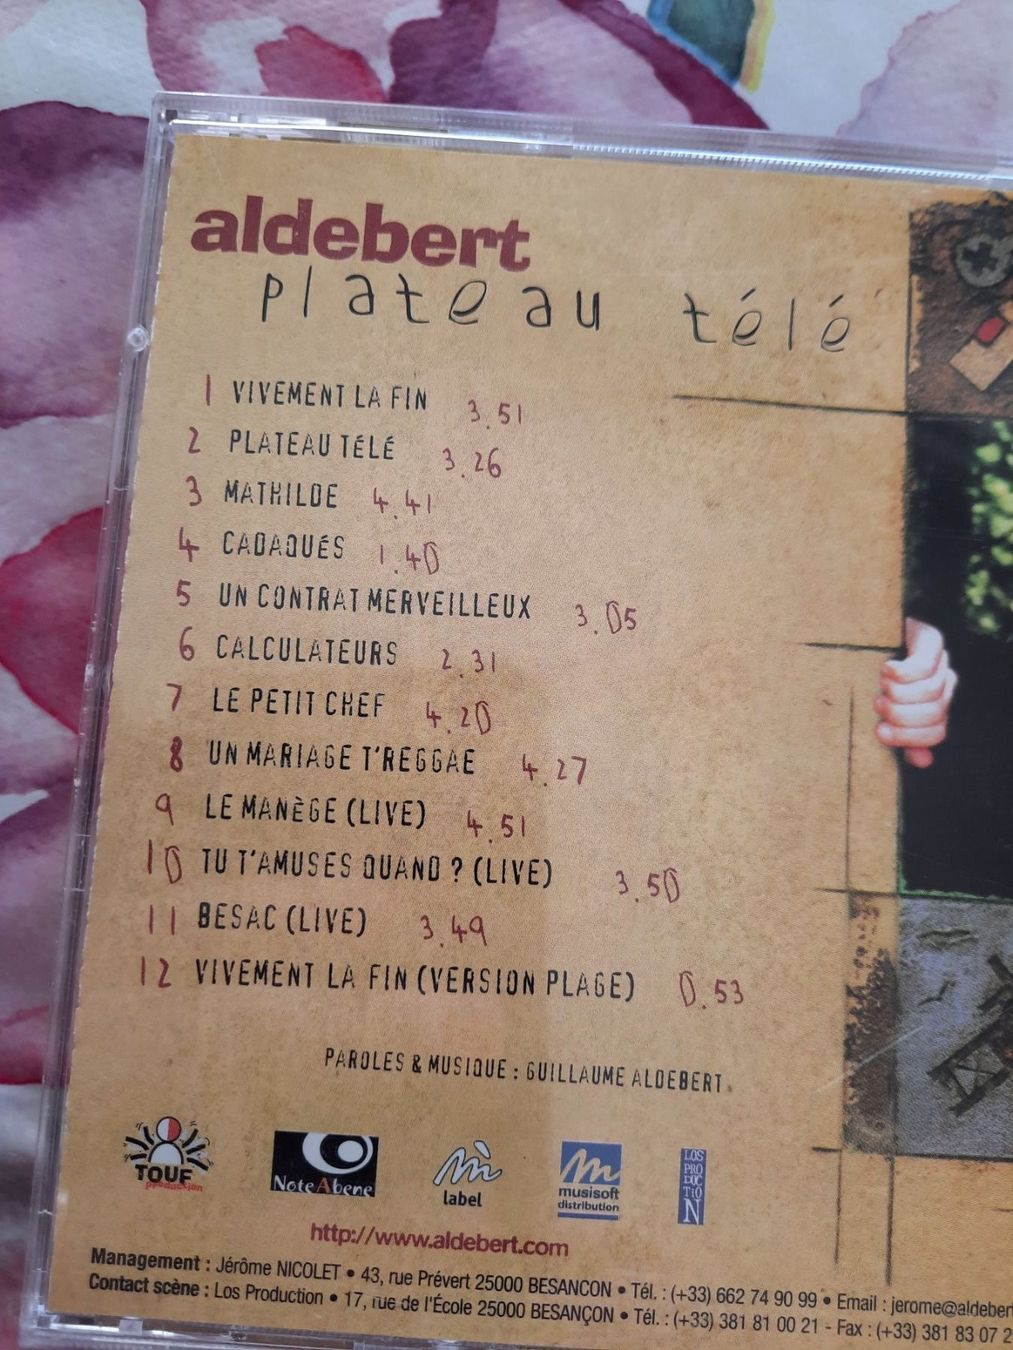 aldebert
plateau télé
1 VIVEMENT LA FIN 3.51
2 PLATEAU TÉLÉ 3.26
3 MATHILDE 4.41
4 CADAQUÉS 1.40
5 UN CONTRAT MERVEILLEUX 3.05
6 CALCULATEURS 2.31
7 LE PETIT CHEF 4.20
8 UN MARIAGE T'REGGAE 4.27
9 LE MANÈGE (LIVE) 4.51
10 TU T'AMUSES QUAND ? (LIVE) 3.50
11 BESAC (LIVE) 3.49
12 VIVEMENT LA FIN (VERSION PLAGE) 0.53
PAROLES & MUSIQUE : GUILLAUME ALDEBERT
TOUF
production
NoteAbene
label
musisoft
distribution
LOS
PRO
DUC
TiO
N
http://www.aldebert.com
Management : Jérôme NICOLET • 43, rue Prévert 25000 BESANCON • Tél. : (+33) 662 74 90 99 • Email : jerome@aldebert
Contact scène : Los Production • 17, rue de l'École 25000 BESANÇON • Tél. : (+33) 381 81 00 21 - Fax : (+33) 381 83 07 2